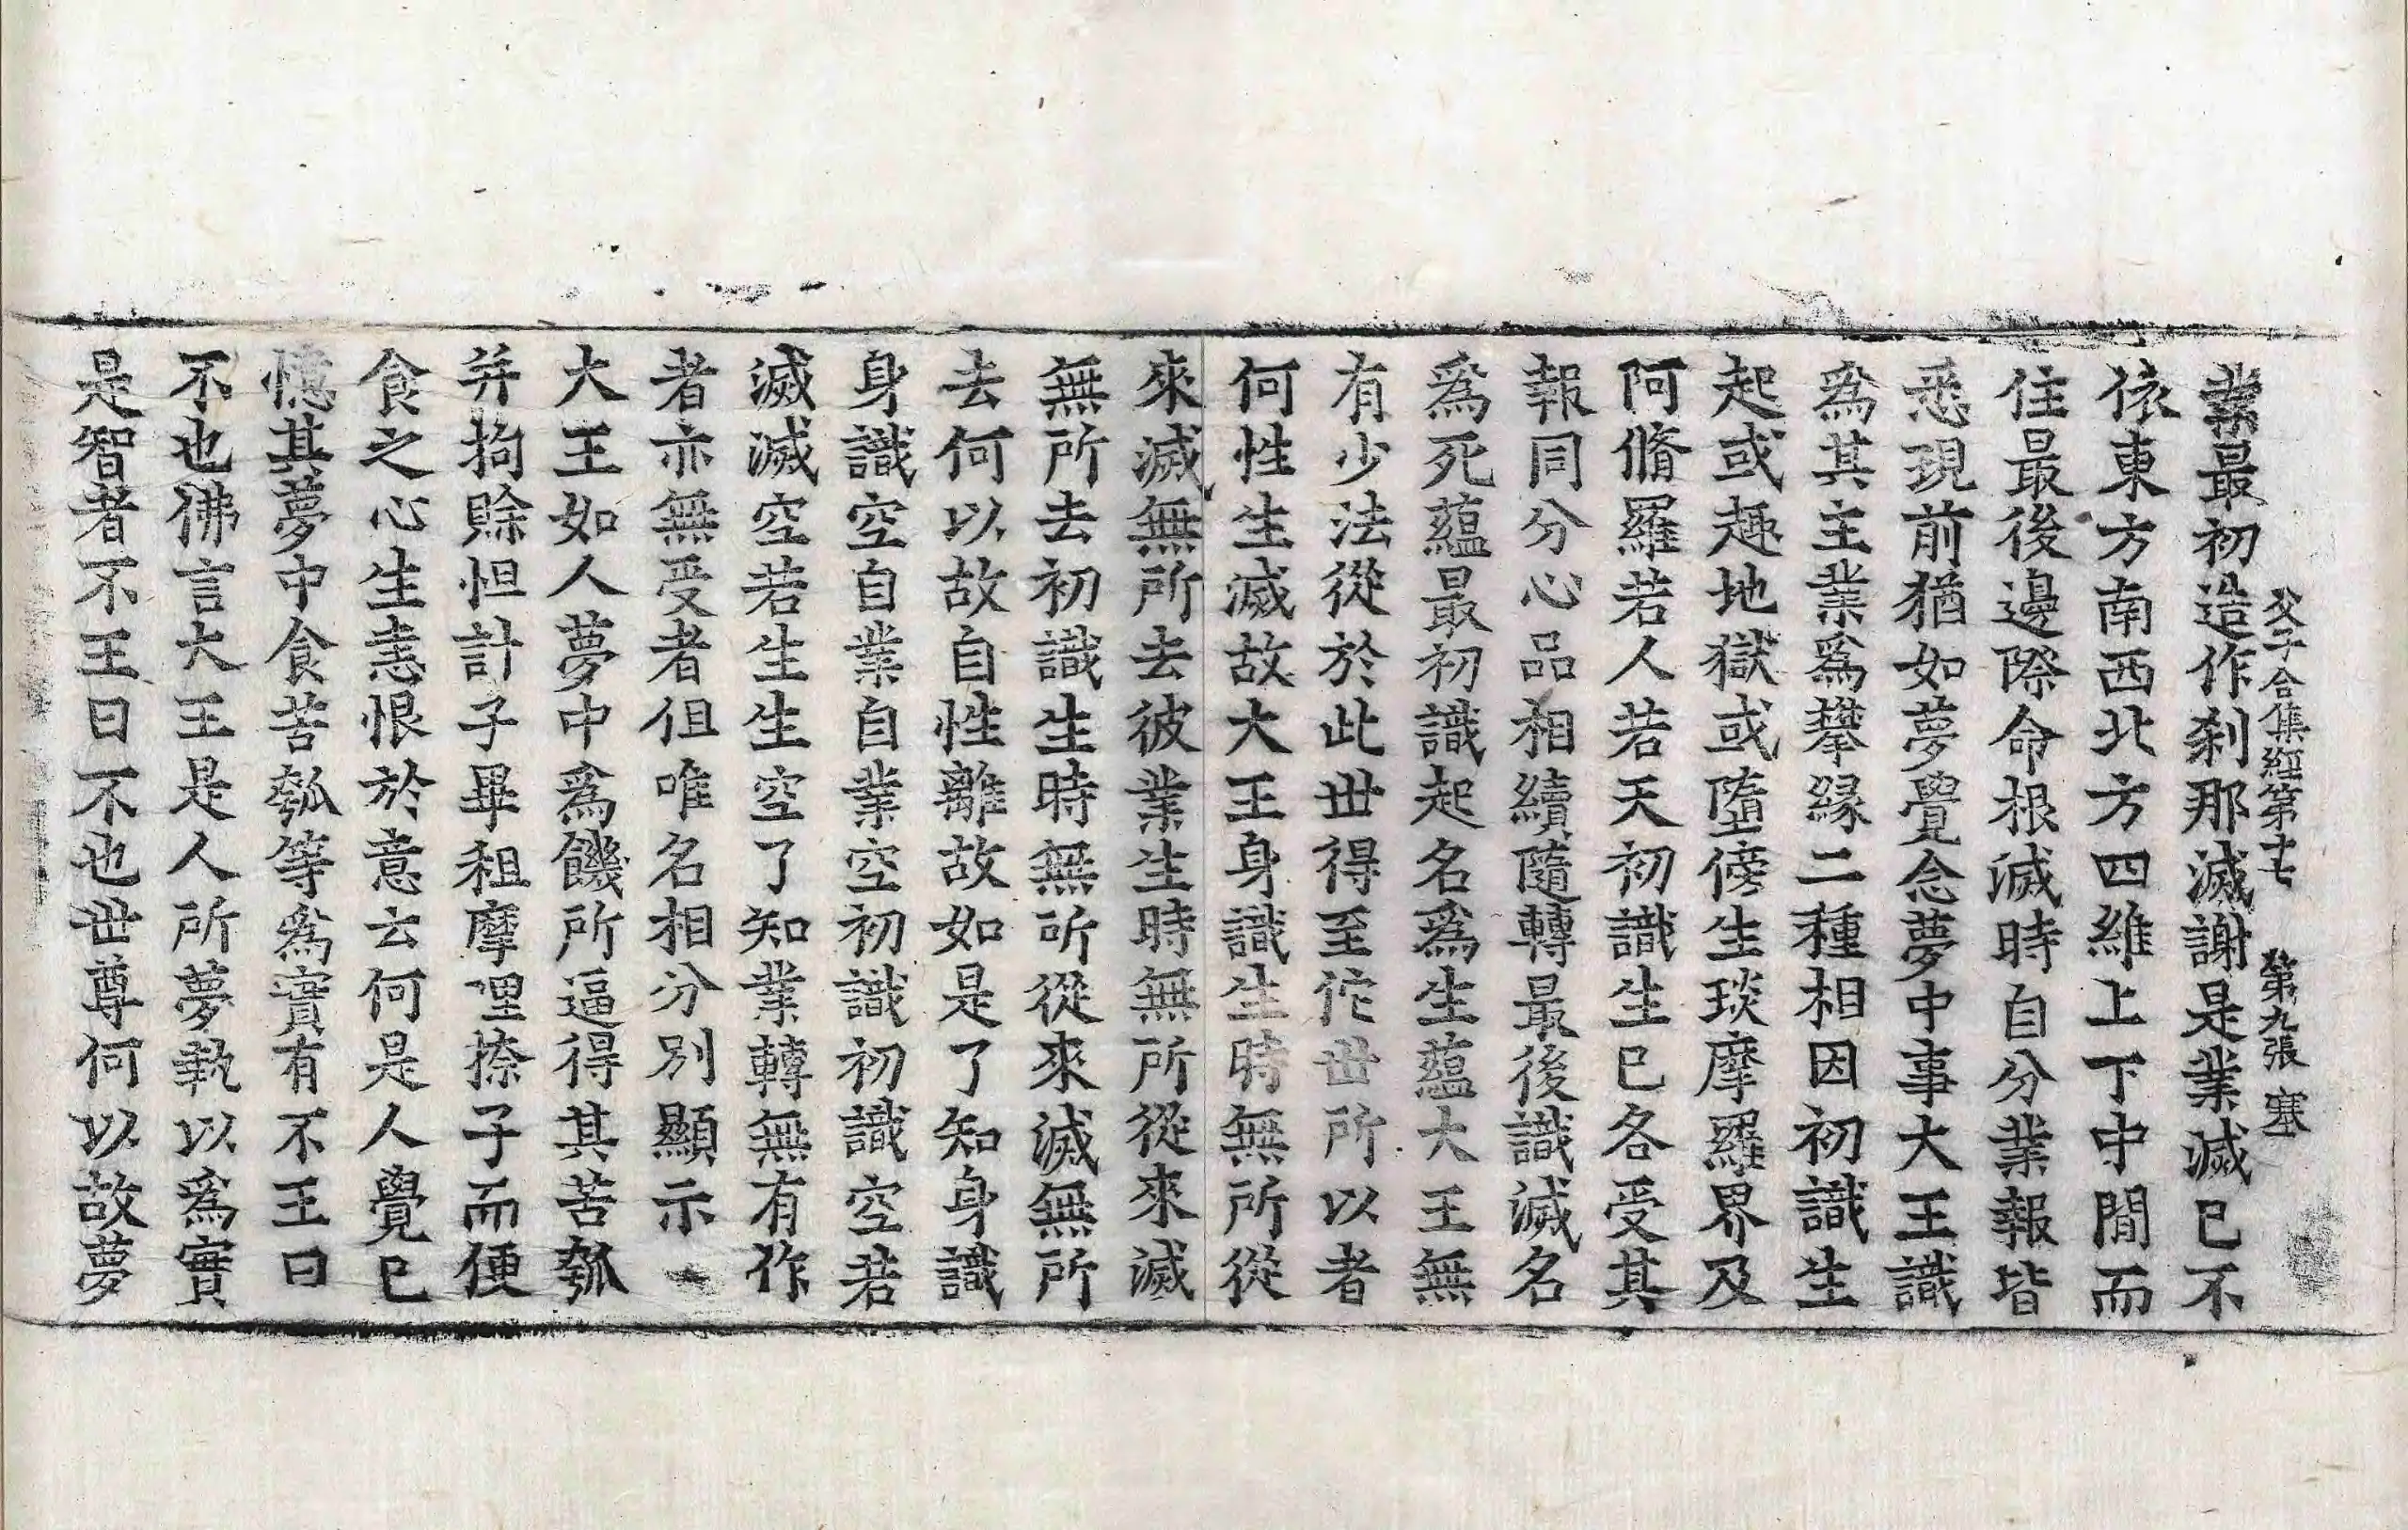 父子合集經第十七　第九張　塞
業最初造作刹那滅謝是業滅已不
依東方南西北方四維上下中間而
住最後邊際命根滅時自分業報皆
悉現前猶如夢覺念夢中事大王識
為其主業為攀緣二種相因初識生
起或趣地獄或墮傍生琰摩羅界及
阿脩羅若人若天初識生已各受其
報同分心品相續隨轉最後識滅名
為死蘊最初識起名為生蘊大王無
有少法從於此世得至佗世所以者
何性生滅故大王身識生時無所從
來滅無所去彼業生時無所從來滅
無所去初識生時無所從來滅無所
去何以故自性離故如是了知身識
身識空自業自業空初識初識空若
滅滅空若生生空了知業轉無有作
者亦無受者但唯名相分別顯示
大王如人夢中為饑所逼得其苦瓠
并拘賖怛計子畢租摩哩捺子而便
食之心生恚恨於意云何是人覺已
憶其夢中食苦瓠等為實有不王曰
不也佛言大王是人所夢執以為實
是智者不王曰不也世尊何以故夢